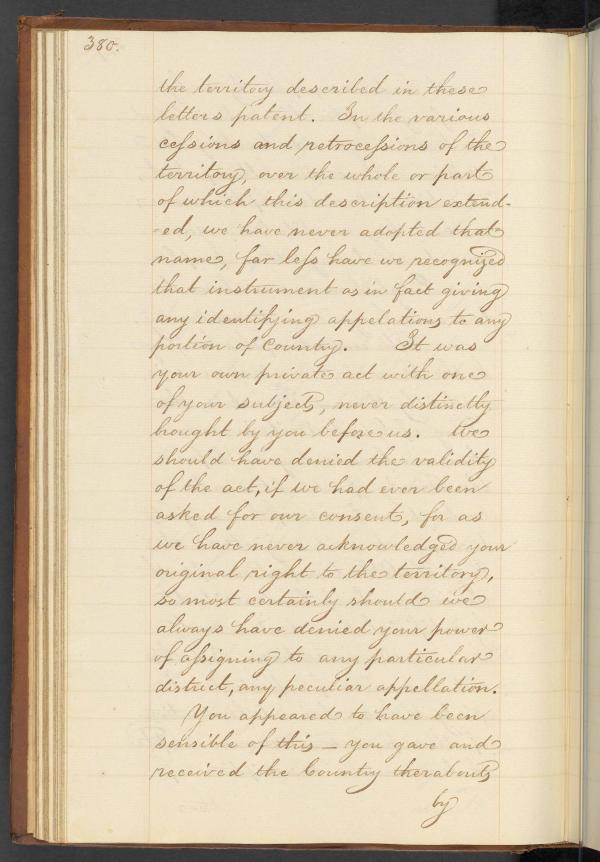 380.
the territory described in these
letters patent. In the various
cessions and retrocessions of the
territory, over the whole or part
of which this description extend-
-ed, we have never adopted that
name, far less have we recognized
that instrument as in fact giving
any identifying appelations to any
portion of Country. It was
your own private act with one
of your subjects, never distinctly
bought by you before us. We
should have denied the validity
of the act, if we had ever been
asked for our consent, for as
we have never acknowledged your
original right to the territory,
so most certainly should we
always have denied your power
of assigning to any particular
district, any peculiar appellation.
You appeared to have been
sensible of this — you gave and
received the Country thereabouts
by